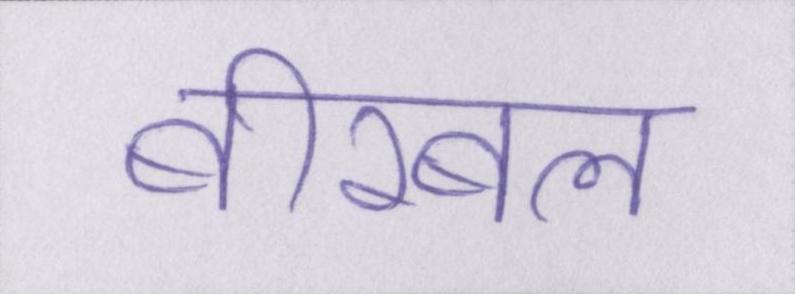 बीरबल